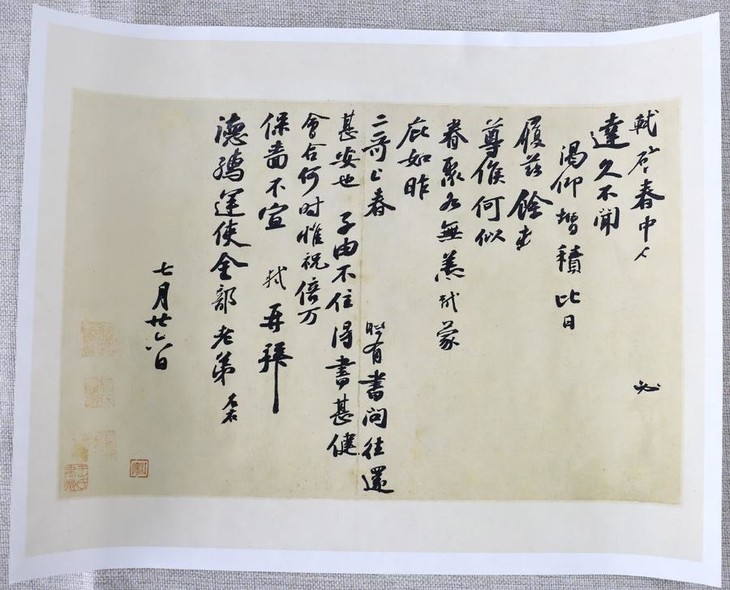 軾啓春中 必
達久不聞
渴仰增積比日
履茲餘
尊候何似
眷聚各無恙軾蒙
庇如昨
二哥上春 時有書問往還
甚安也 子由不住得書甚健
會合何時惟祝倍万
保嗇不宣 軾再拜
德孺運使金部老弟左右
七月廿六日